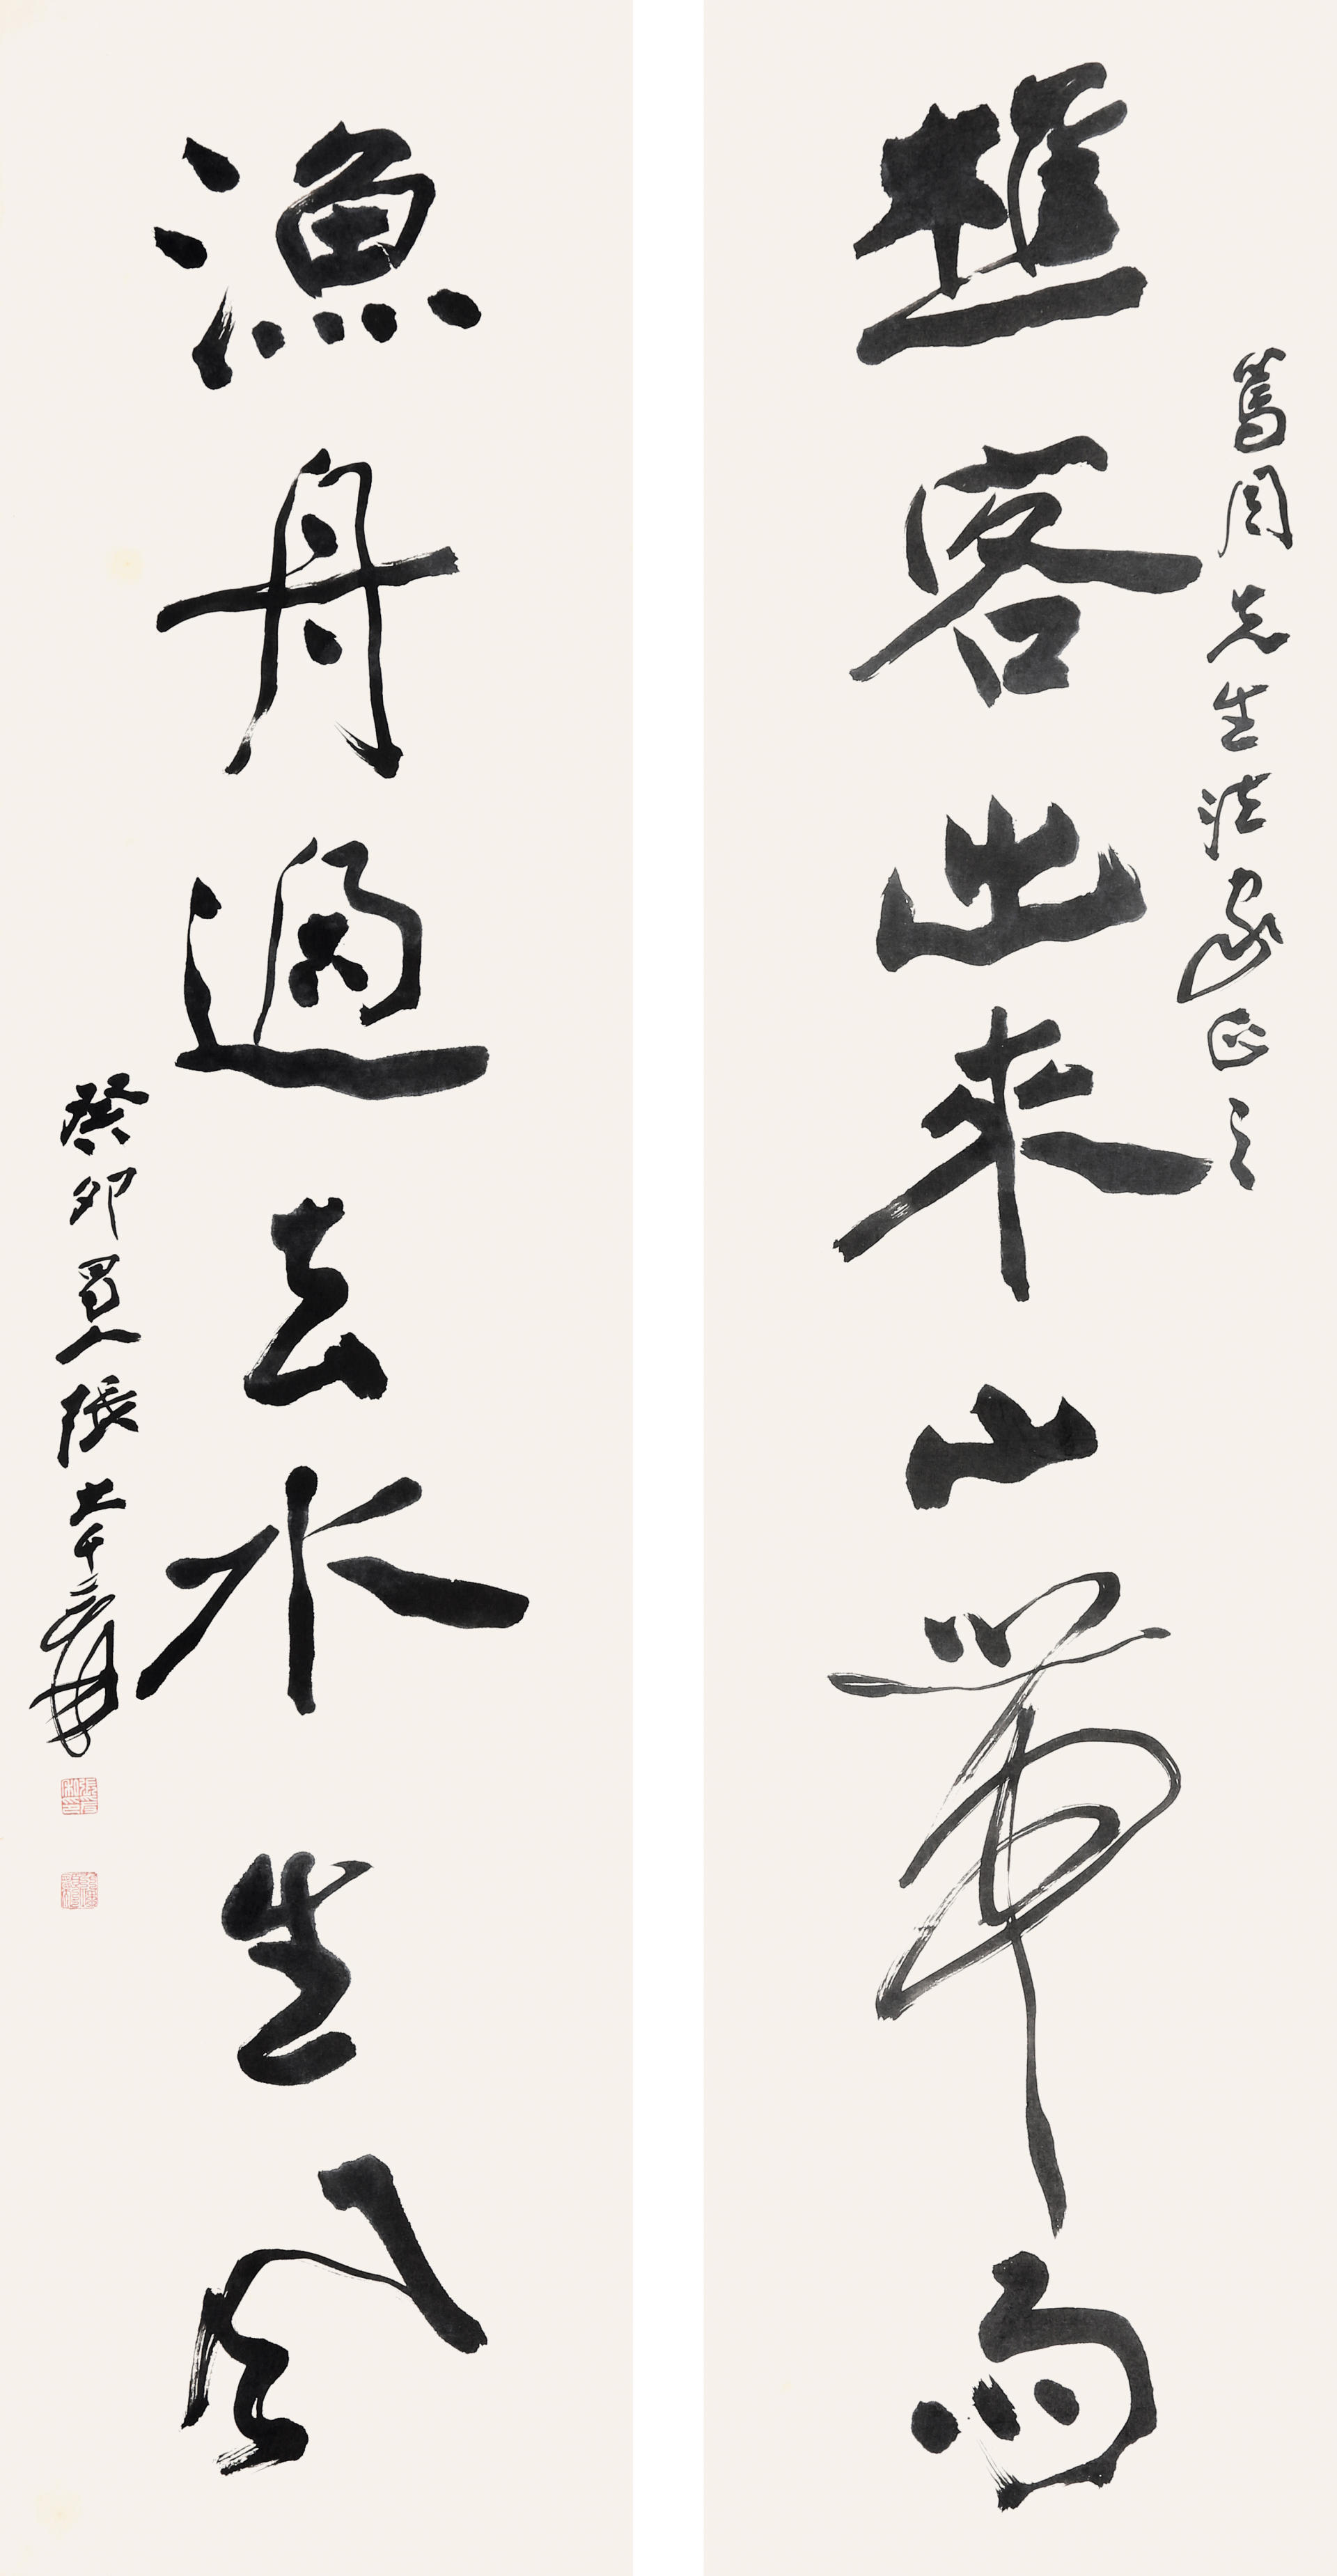 篤周先生法家正之
樵客出來山帶雨
漁舟過去水生風
癸卯蜀人張大千爰